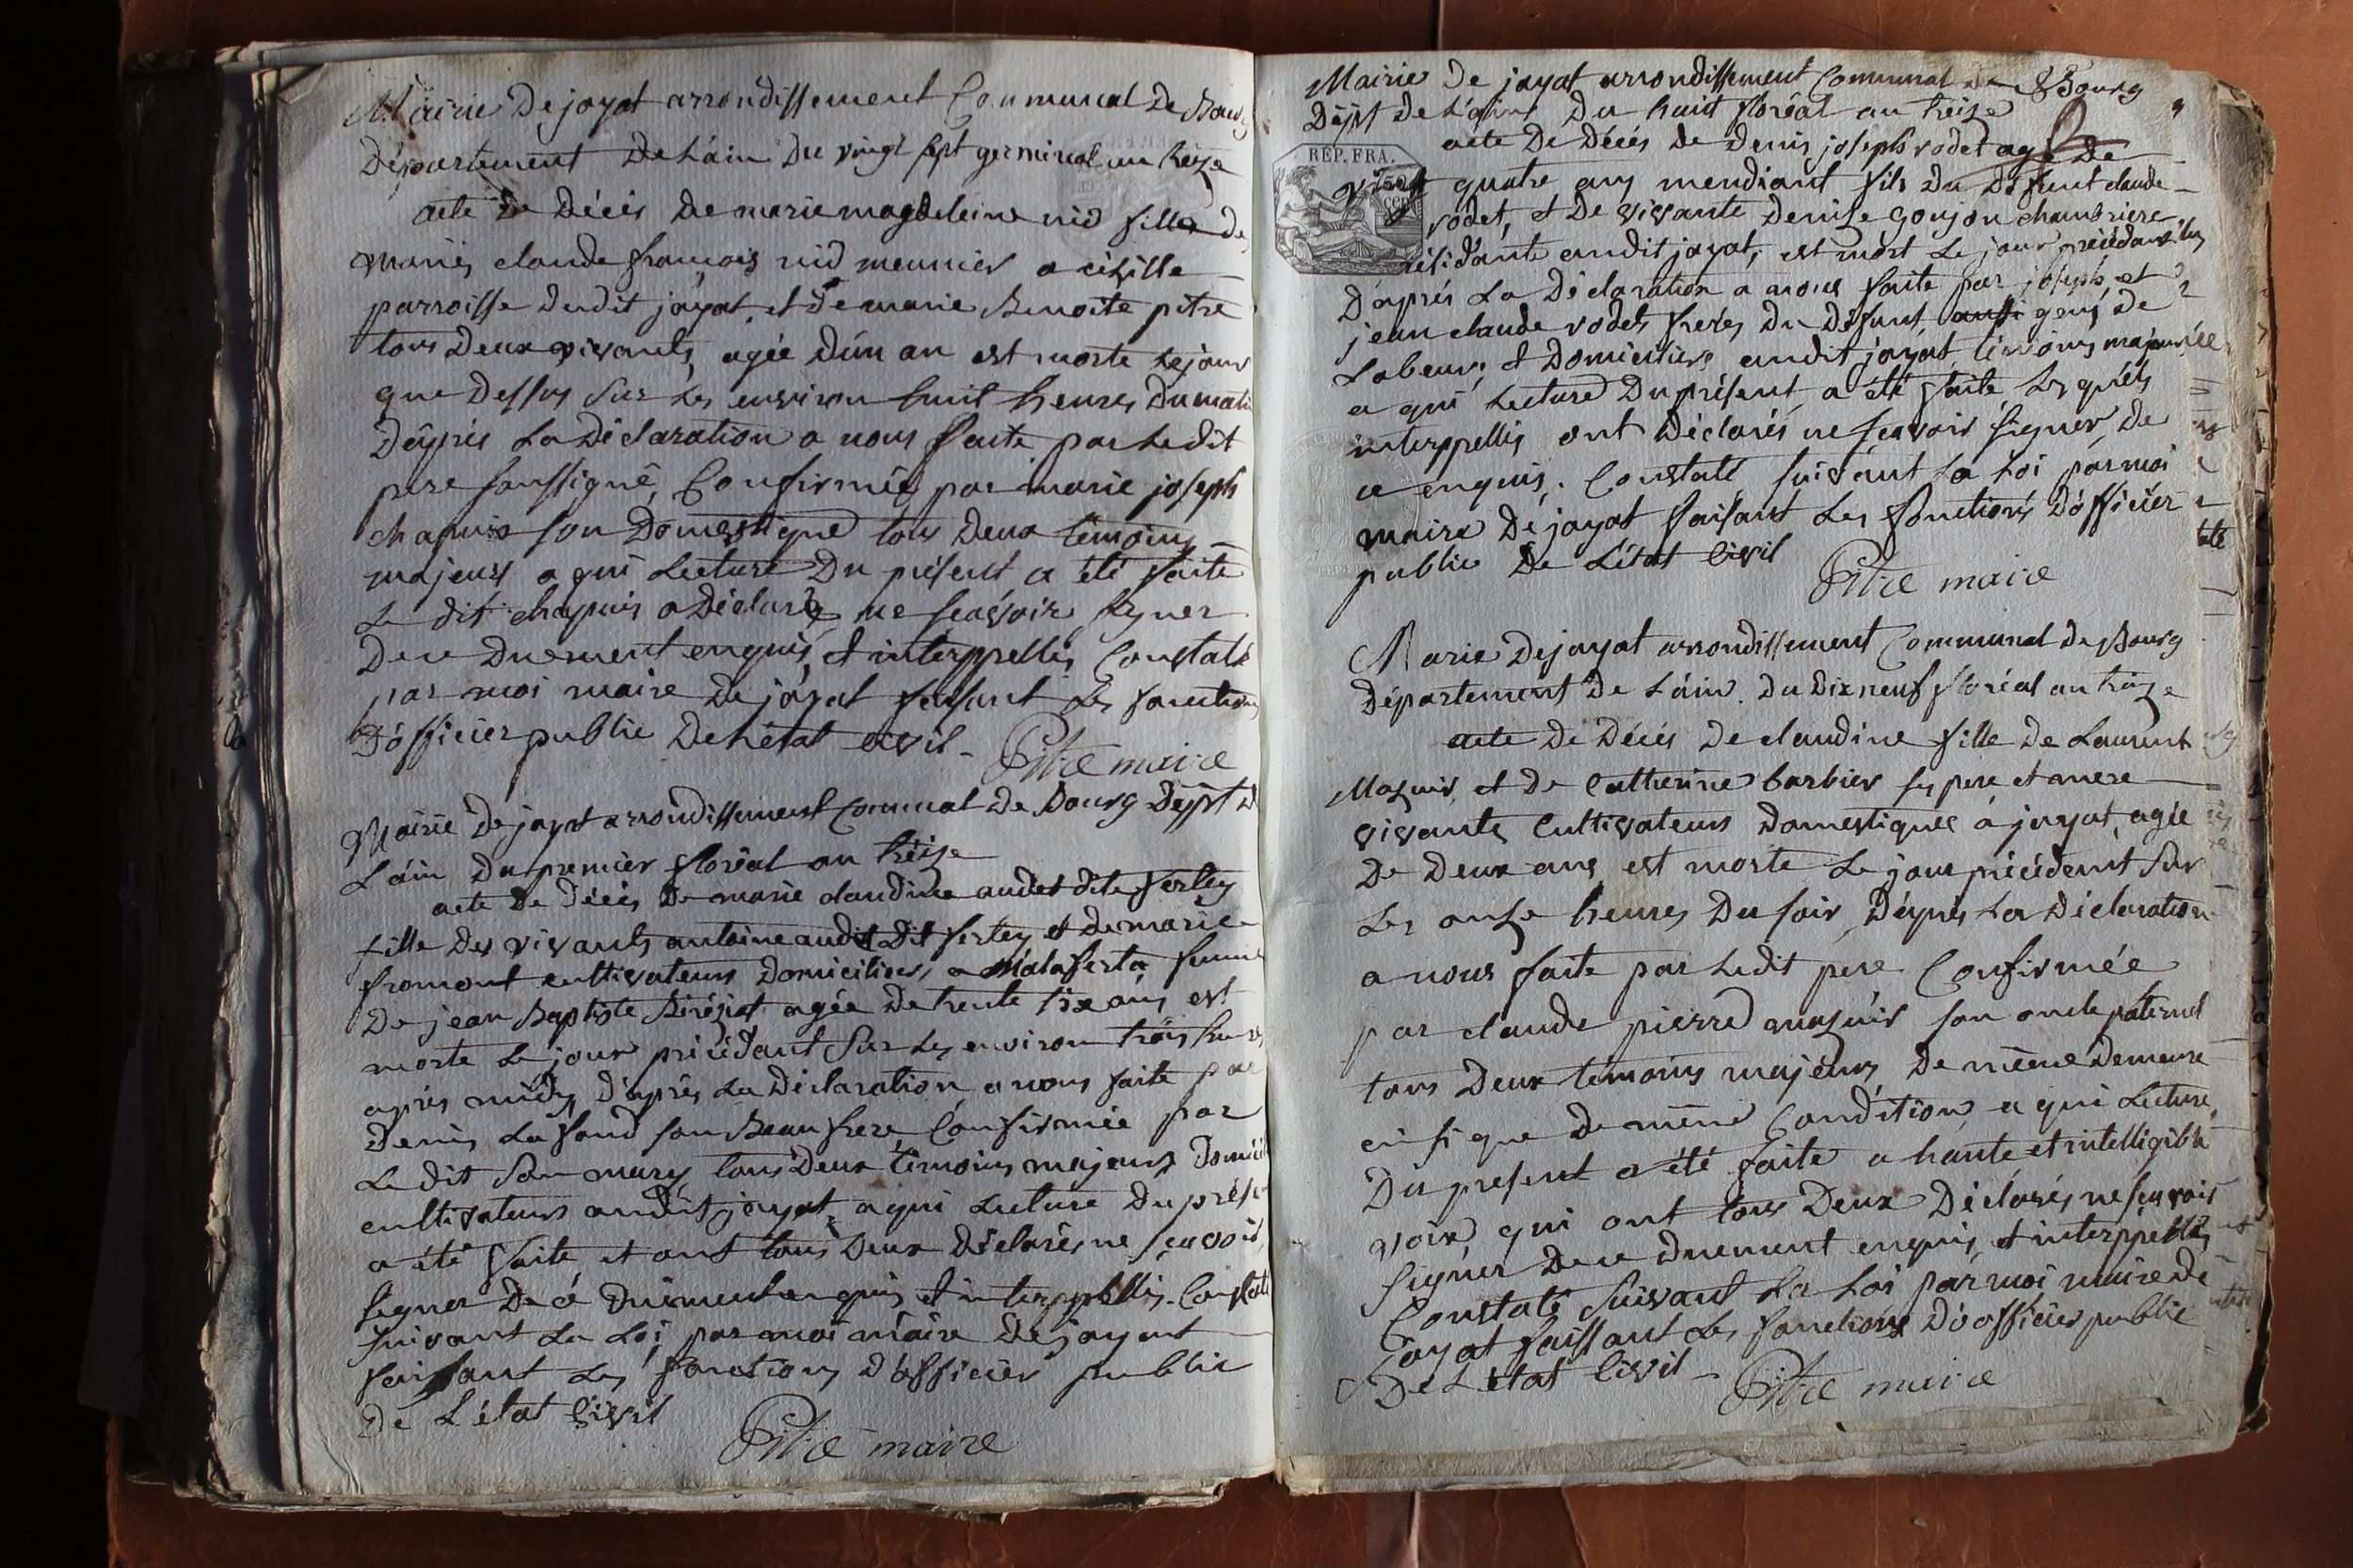 Mairie De jayat arrondissement Communal De Bourg
Département De L'ain Du vingt sept germinal an treize
acte De Décès De marie magdeleine nid fille de
mariés claude françois nid meunier a
parroisse dudit jayat, et de marie Benoite pitre
tous Deux vivants, agée d'un an est morte le jour
que Dessus sur les environ huit heures du matin
D'après La Déclaration a nous faite par Le dit
pere soussigné, Confirmée par marie joseph
chapuis son Domestique tous Deux temoins
majeurs a qui Lecture Du présent a été faite
Le dit chapuis a Déclaré ne scavoir signer
De ce Duement enquis, et interppellés Constaté
par moi maire De jayat faisant les fonctions
D'officier public De L'état civil -
Pitre maire
Mairie De jayat arrondissement Communal De Bourg Dept De
L'ain Du premier floréal an treize
acte De Décès De marie claudine audet dite fertey
fille Des vivants antoine audet Dit fertey et De marie
fromont cultivateurs Domiciliers a Malaferta femme
De jean Baptiste agée De trente six ans, est
morte Le jour précédant sur les environ trois heures
après midy, D'après La Déclaration a nous faite par
Denis La fond son Beau frere, Confirmée par
Le dit son mary tous Deux témoins majeurs
cultivateurs audit jayat, a qui Lecture Du présent
a été faite et ont tous Deux Déclarés ne scavoir
signer De ce Duement enquis et interppellés. Constaté
suivant La Loi, par moi maire De jayat
faissant Les fonctions D'officier public
De L'état Civil
Pitre maire
Mairie De jayat arrondissement Communal De Bourg
Dépt De L'ain Du huit floréal an treize
acte De Décès De Denis joseph rodet agé De
REP. FRA.
vingt quatre ans mendiant fils Du Défunt claude
rodet, et De vivante Denise goujon chambriere
résidante audit jayat, est mort Le jour précédant
D'après La Déclaration a nous faite par joseph, et
jean claude rodet freres Du Défunt aussi gens De
Labeur, et Domiciliers audit jayat témoins majeurs
a qui Lecture Du présent a été faite, Lesquels
interppellés ont Déclarés ne scavoir signer De
ce enquis. Constaté suivant La Loi par moi
maire De jayat faisant Les fonctions D'officier
public De L'état Civil
Pitre maire
Marie De jayat arrondissement Communal De Bourg
Département De L'ain. Du Dix neuf floréal an treize
acte De Décès De claudine fille De Laurent
Mazuir, et De Catherine barbier ses pere et mere
vivants Cultivateurs Domestiques a jayat, agée
De Deux ans est morte Le jour précédent sur
Les onze heures Du soir, D'après La Déclaration
a nous faite par Ledit pere Confirmée
par claude pierre mazuir son oncle paternel
tous Deux témoins majeurs De même Demeure
ensi que De même Condition, a qui Lecture
Du present a été faite a haute et intelligible
voix, qui ont tous Deux Déclarés ne scavoir
signer De ce Duement enquis, et interppellés
Constaté suivant La Loi par moi maire De
jayat faissant Les fonctions D'officier public
De L'état Civil -
Pitre maire